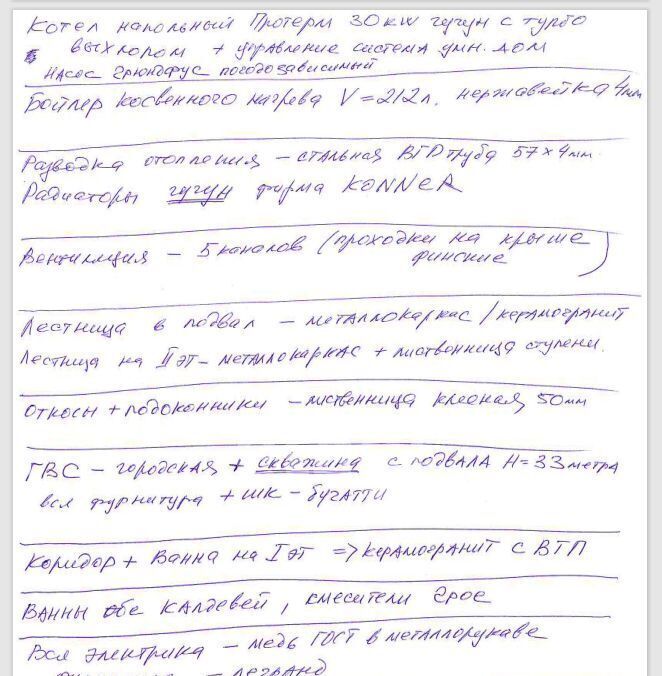 Котел напольный Протерм 30 kW чугун с турбо
выхлопом + управление система умн. дом
насос грюндфус погодозависимый
Бойлер косвенного нагрева V=212л. нержавейка 4мм
Разводка отопления – стальная ВГП труба 57×4мм.
Радиаторы чугун фирма KONNER
Вентиляция – 5 каналов (проходки на крыше
финские)
Лестница в подвал – металлокаркас / керамогранит
Лестница на II эт – металлокаркас + лиственница ступени.
Откосы + подоконники – лиственница клееная 50мм
ГВС – городская + скважина с подвала H=33 метра
вся фурнитура + шк – бугатти
Коридор + Ванна на I эт => керамогранит с ВТП
Ванны обе Калдевей, смесители Грое
Вся электрика – медь ГОСТ в металлорукаве
– легранд